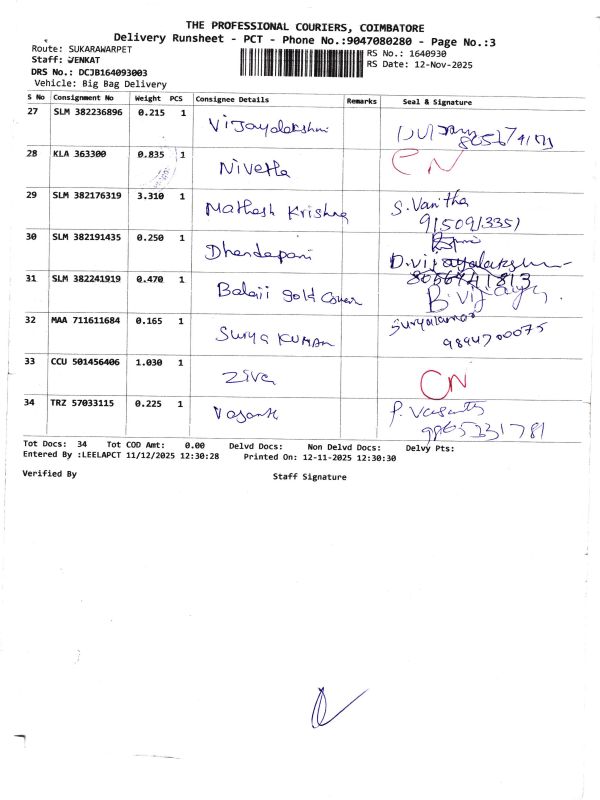 THE PROFESSIONAL COURIERS, COIMBATORE
Delivery Runsheet - PCT - Phone No.:9047080280 - Page No.:3
Route: SUKARAWARPET
RS No.: 1640930
Staff: VENKAT
RS Date: 12-Nov-2025
DRS No.: DCJB164093003
Vehicle: Big Bag Delivery
S No Consignment No Weight PCS Consignee Details Remarks Seal & Signature
27 SLM 382236896 0.215 1 Vijayalakshmi
28 KLA 363300 0.835 1 Nivetha CN
29 SLM 382176319 3.310 1 Mathesh Krishna S. Vanitha
9150913351
30 SLM 382191435 0.250 1 Dhandapani D.vijayalakshmi
31 SLM 382241919 0.470 1 Balaji gold Cover B. Vijaya
32 MAA 711611684 0.165 1 Surya KUMAR Suryakumar
9894700075
33 CCU 501456406 1.030 1 Ziva CN
34 TRZ 57033115 0.225 1 Vasanth P. Vasanth
Tot Docs: 34 Tot COD Amt: 0.00 Delvd Docs: Non Delvd Docs: Delvy Pts:
Entered By :LEELAPCT 11/12/2025 12:30:28 Printed On: 12-11-2025 12:30:30
Verified By Staff Signature